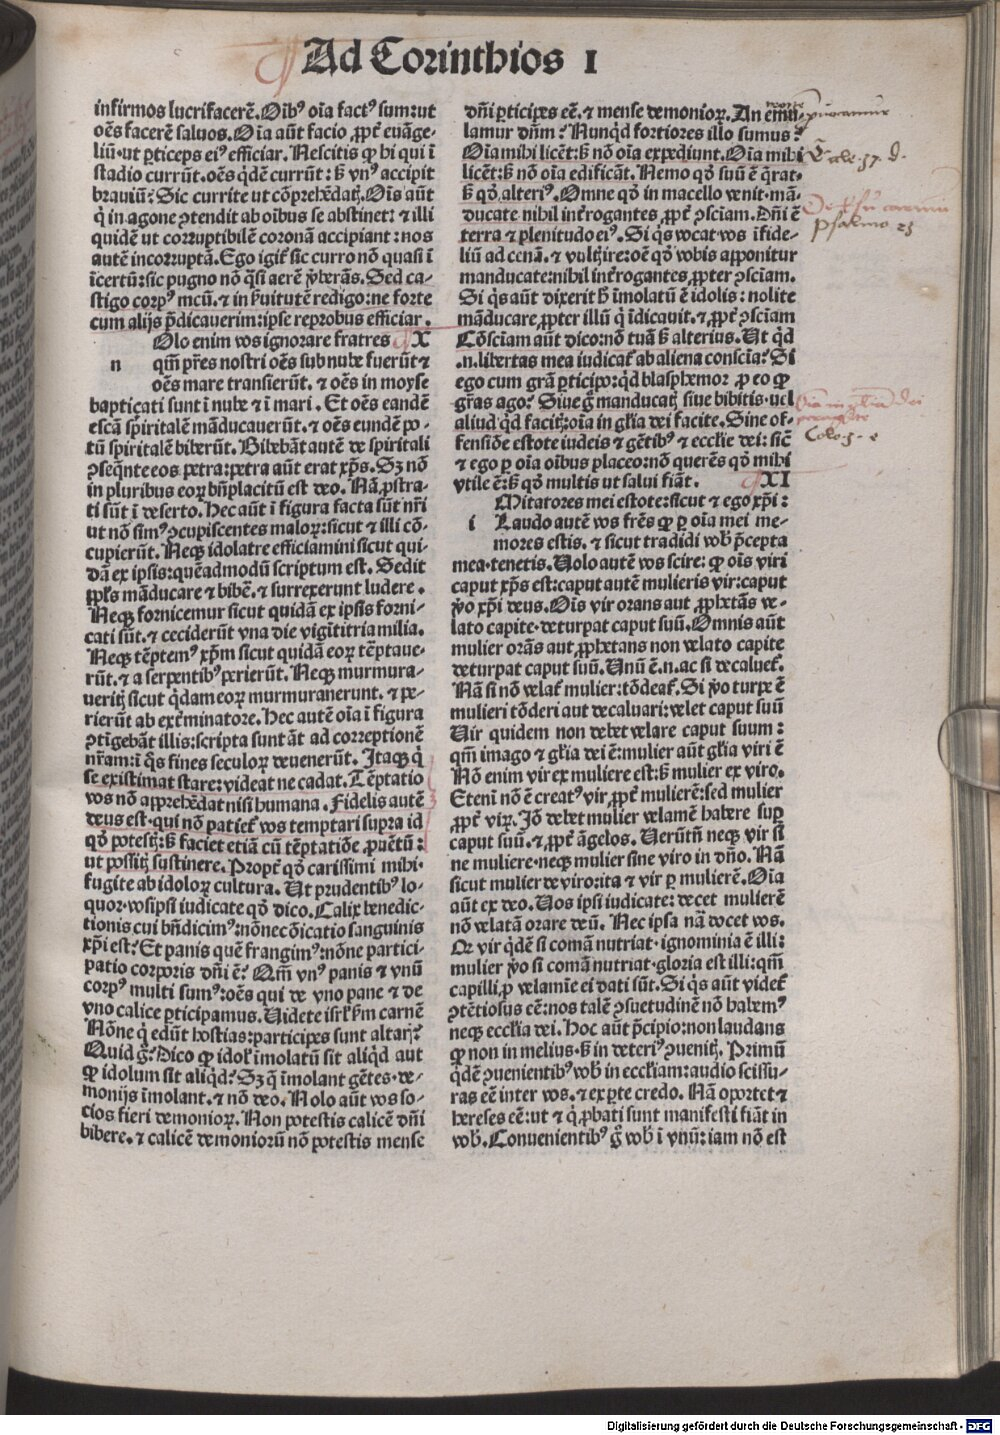 Ad Corinthios I
infirmos lucrifacerē. Oīb⁹ oīa fact⁹ sum: ut
oēs facerē saluos. Oīa aūt facio ꝓpt̄ euāge-
liū ut ꝑticeps ei⁹ efficiar. Nescitis ꝙ hi qui ī
stadio currūt. oēs qͥdē currūt: sꝫ vn⁹ accipit
brauiū? Sic currite ut cōprehēdatꝭ. Oīs aūt
qͥ in agone ꝯtendit ab oībus se abstinet: ⁊ illi
quidē ut corruptibilē coronā accipiant: nos
autē incorruptā. Ego igit᷑ sic curro nō quasi ī
īcertū: sic pugno nō q̄si aerē v̓berās. Sed ca-
stigo corp⁹ meū. ⁊ in ẜuitutē redigo: ne forte
cum alijs p̄dicauerim: ipse reprobus efficiar.
Olo enim vos ignorare fratres X
n qm̄ pr̄es nostri oēs sub nube fuerūt ⁊
oēs mare transierūt. ⁊ oēs in moyse
bapticati sunt ī nube ⁊ ī mari. Et oēs eandē
escā spiritalē māducauerūt. ⁊ oēs eundē po-
tū spiritalē biberūt. Bibebāt autē de spiritali
ꝯseq̄nte eos petra: petra aūt erat xp̄s. Sꝫ nō
in pluribus eoꝝ bn̄placitū est deo. Nā ꝓstra-
ti sūt ī deserto. Hec aūt ī figura facta sūt nr̄i
ut nō sim⁹ ꝯcupiscentes maloꝝ: sicut ⁊ illi cō-
cupierūt. Neqꝫ idolatre efficiamini sicut qui-
dā ex ipsis: quēadmodū scriptum est. Sedit
ꝓpl̓s māducare ⁊ bibē. ⁊ surrexerunt ludere.
Neqꝫ fornicemur sicut quidā ex ipsis forni-
cati sūt. ⁊ ceciderūt vna die vigīti tria milia.
Neqꝫ tēptem⁹ xp̄m sicut quidā eoꝝ tēptaue-
rūt. ⁊ a serpentib⁹ perierūt. Neqꝫ murmura-
ueritꝭ sicut qͥdam eoꝝ murmurauerunt. ⁊ pe-
rierūt ab ext̓minatore. Hec autē oīa ī figura
ꝯtīgebāt illis: scripta sunt āt ad correptionē
nr̄am: ī qͦs fines seculoꝝ deuenerūt. Itaqꝫ qͥ
se existimat stare: videat ne cadat. Tēptatio
vos nō apprehēdat nisi humana. Fidelis autē
deus est qui nō patiet᷑ vos temptari supra id
qd̓ potestꝭ: sꝫ faciet etiā cū tēptatiōe ꝓuētū:
ut possitꝭ sustinere. Propt̓ qd̓ carissimi mihi
fugite ab idoloꝝ cultura. Ut prudentib⁹ lo-
quor vosipsi iudicate qd̓ dico. Calix benedic-
tionis cui bn̄dicim⁹: nōne cōicatio sanguinis
xp̄i est? Et panis quē frangim⁹: nōne partici-
patio corporis dn̄i ē? Qm̄ vn⁹ panis ⁊ vnū
corp⁹ multi sum⁹: oēs qui de vno pane ⁊ de
vno calice ꝑticipamus. Videte isr̄l ẜm carnē
Nōne qͥ edūt hostias: participes sunt altarꝭ?
Quid g̊? Dico ꝙ idol̓ īmolatū sit aliqͥd aut
ꝙ idolum sit aliqͥd? Sꝫ q̄ īmolant gētes de-
monijs īmolant. ⁊ nō deo. Nolo aūt vos so-
cios fieri demonioꝝ. Non potestis calicē dn̄i
bibere. ⁊ calicē demoniorū nō potestis mense
dn̄i ꝑticipes eē. ⁊ mense demonioꝝ. An emu-
lamur dn̄m? Nunqͥd fortiores illo sumus?
Oīa mihi licēt: sꝫ nō oīa expediunt. Oīa mihi
licēt: sꝫ nō oīa edificāt. Nemo qd̓ suū ē q̄rat
sꝫ qd̓ alteri⁹. Omne qd̓ in macello venit mā-
ducate nihil int̓rogantes ꝓpt̓ ꝯsciam. Dn̄i ē
terra ⁊ plenitudo ei⁹. Si qͥs vocat vos īfide-
liū ad cenā. ⁊ vultꝭ ire: oē qd̓ vobis apponitur
manducate: nihil int̓rogantes ꝓpter ꝯsciam.
Si qͥs aūt dixerit hͦ īmolatū ē idolis: nolite
māducare ꝓpter illū qͥ īdicauit. ⁊ ꝓpt̓ ꝯsciam
Cōsciam aūt dico: nō tuā sꝫ alterius. Ut qͥd
.n. libertas mea iudicat᷑ ab aliena conscia? Si
ego cum grā ꝑticipo: qͥd blasphemor ꝓ eo ꝙ
gr̄as ago? Siue g̊ manducatꝭ siue bibitis uel
aliud qͥd facitꝭ: oīa in gl̓ia dei facite. Sine of-
fensiōe estote iudeis ⁊ gētib⁹ ⁊ eccl̓ie dei: sic̄
⁊ ego ꝑ oīa oībus placeo: nō querēs qd̓ mihi
vtile ē: sꝫ qd̓ multis ut salui fiāt. XI
Mitatores mei estote: sicut ⁊ ego xp̄i:
i Laudo autē vos fr̄es ꝙ ꝑ oīa mei me-
mores estis. ⁊ sicut tradidi vob̓ p̄cepta
mea tenetis. Uolo autē vos scire: ꝙ oīs viri
caput xp̄s est: caput autē mulieris vir: caput
v̓o xp̄i deus. Oīs vir orans aut ꝓphetās ve-
lato capite deturpat caput suū. Omnis aūt
mulier orās aut ꝓphetans non velato capite
deturpat caput suū. Unū ē .n. ac si decaluet᷑.
Nā si nō velat᷑ mulier: tōdeat᷑. Si v̓o turpe ē
mulieri tōderi aut decaluari: velet caput suū
Uir quidem non debet velare caput suum:
qm̄ imago ⁊ gl̓ia dei ē: mulier aūt gl̓ia viri ē
Nō enim vir ex muliere est: sꝫ mulier ex viro.
Etenī nō ē creat⁹ vir ꝓpt̓ mulierē: sed mulier
ꝓpt̓ viꝝ. Iō debet mulier velamē habere suꝑ
caput suū. ⁊ ꝓpt̓ āgelos. Uerūtn̄ neqꝫ vir si
ne muliere neqꝫ mulier sine viro in dn̄o. Nā
sicut mulier de viro: ita ⁊ vir ꝑ mulierē. Oīa
aūt ex deo. Uos ipsi iudicate: decet mulierē
nō velatā orare deū. Nec ipsa nā docet vos.
Ꝙ vir qͥdē si comā nutriat ignominia ē illi:
mulier v̓o si comā nutriat gloria est illi: qm̄
capilli ꝓ velamīe ei dati sūt. Si qͥs aūt videt᷑
ꝯtētiosus eē: nos talē ꝯsuetudinē nō habem⁹
neqꝫ eccl̓ia dei. Hoc aūt p̄cipio: non laudans
ꝙ non in melius sꝫ in deteri⁹ ꝯuenitꝭ. Primū
qͥdē ꝯuenientib⁹ vob̓ in eccl̓iam: audio scissu-
ras eē inter vos. ⁊ ex ꝑte credo. Nā oportet ⁊
hereses eē: ut ⁊ qͥ ꝓbati sunt manifesti fiāt in
vob̓. Conuenientib⁹ g̊ vob̓ ī vnū: iam nō est
psalmo 23
Digitalisierung gefördert durch die Deutsche Forschungsgemeinschaft - DFG